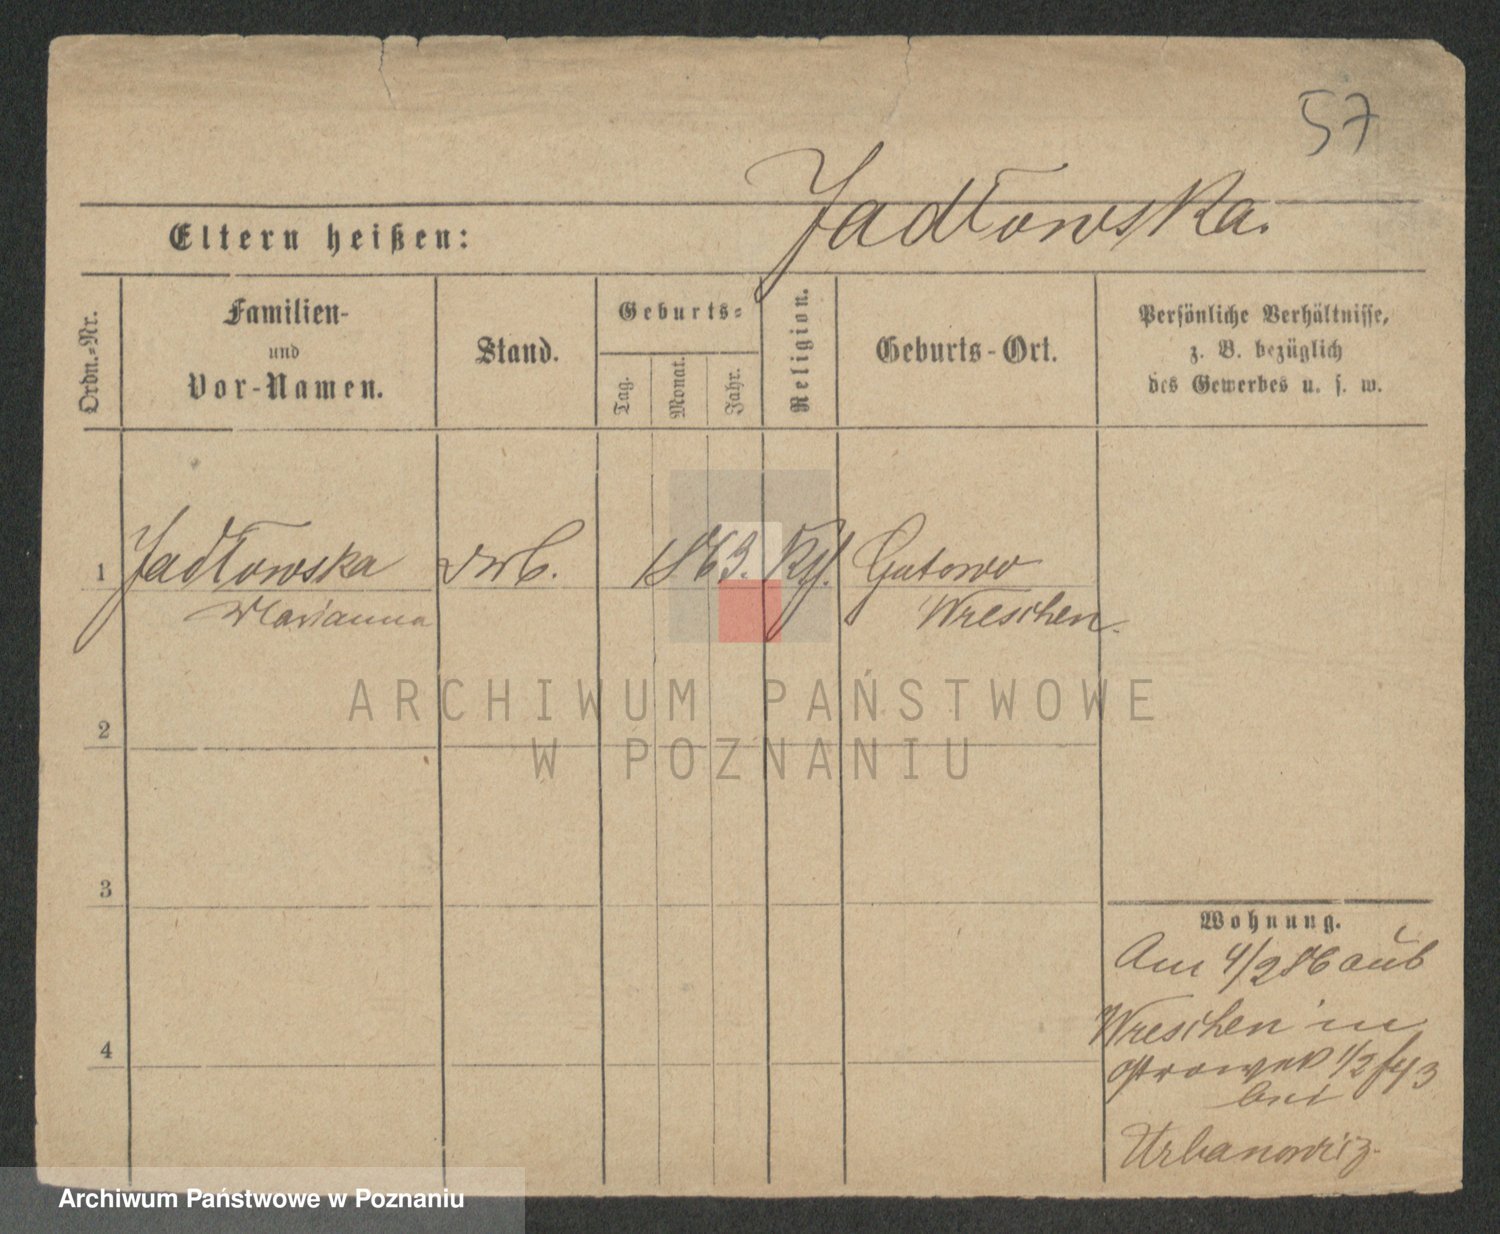 57
Jadłowska.
Eltern heißen:
Ordn.-Nr.
Familien-
und
Vor-Namen.
Stand.
Geburts-
Tag.
Monat.
Jahr.
Religion.
Geburts-Ort.
Persönliche Verhältnisse,
z. B. bezüglich
des Gewerbes u. s. w.
1 Jadłowska 1863. Gutowo
Marianna Wreschen.
ARCHIWUM PAŃSTWOWE
W POZNANIU
2
3
4
Wohnung.
Am 4/2 86 aus
Wreschen in
Ostrowek 1/2
bei
Urbanowicz.
Archiwum Państwowe w Poznaniu